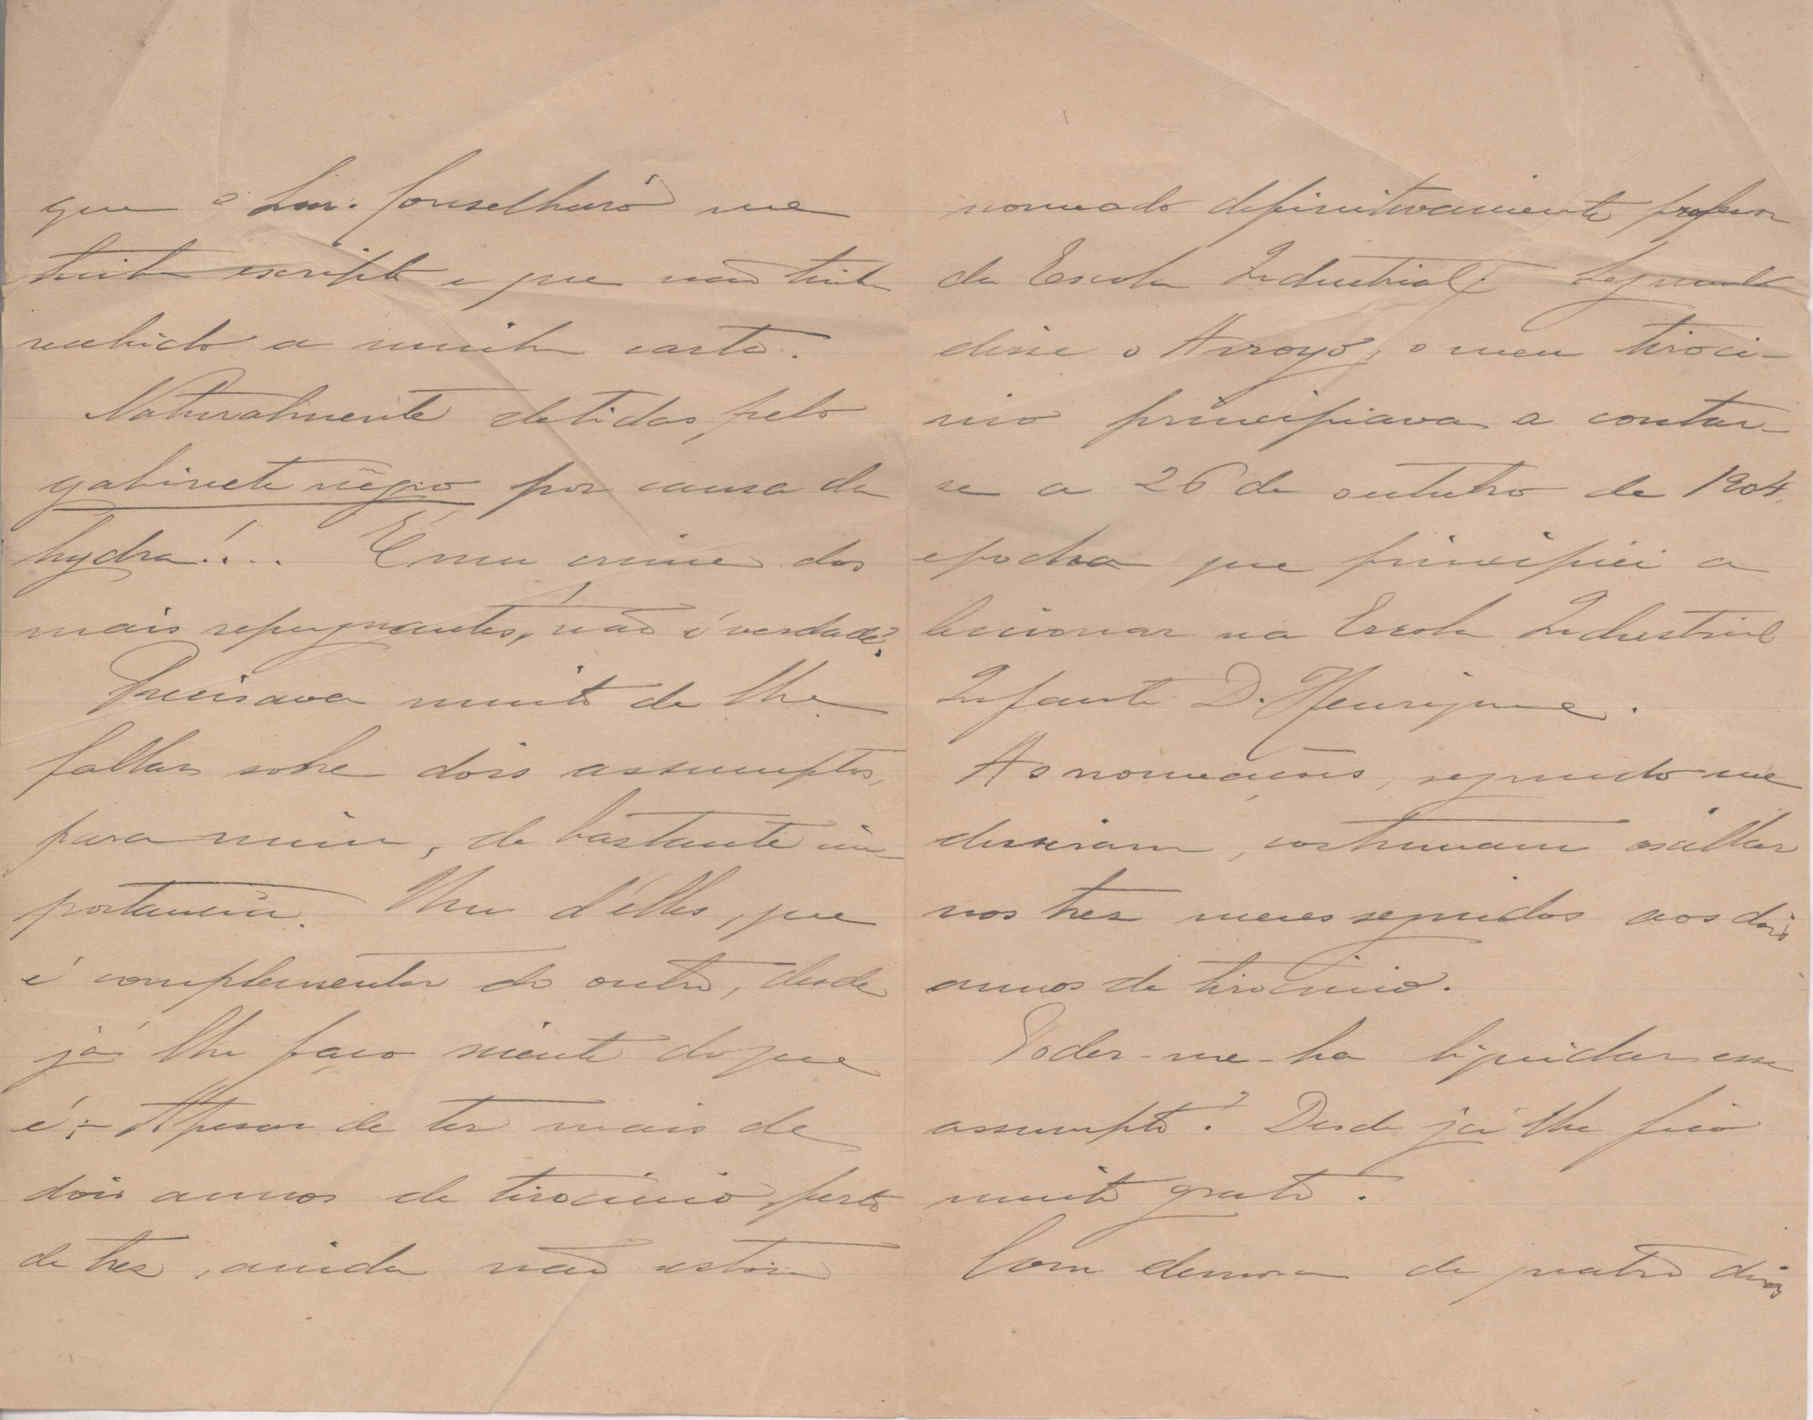 que o Snr. Conselheiro me
tinha escripto e que não tinha
recebido a minha carta.
Naturalmente detidas pelo
gabinete negro por causa da
hydra!... É um crime dos
mais repugnantes, não é verdade?
Precisava muito de lhe
fallar sobre dois assumptos,
para mim, de bastante im-
portancia. Um d'elles, que
é complementar do outro, desde
já lhe faço sciente do que
é:- Apesar de ter mais de
dois annos de tirocinio, perto
de tres, ainda não estou
nomeado definitivamente professor
da Escola Industrial. Segundo
disse o Arroyo, o meu tiroci-
nio principiava a contar-
se a 26 de outubro de 1904,
epocha que principiei a
leccionar na Escola Industrial
Infante D. Henrique.
As nomeações, segundo me
disseram, costumam
nos tres meses seguidos aos dois
annos de tirocinio.
Poder-me-ha liquidar esse
assumpto? Desde já lhe fico
muito grato.
Com demora de quatro dias